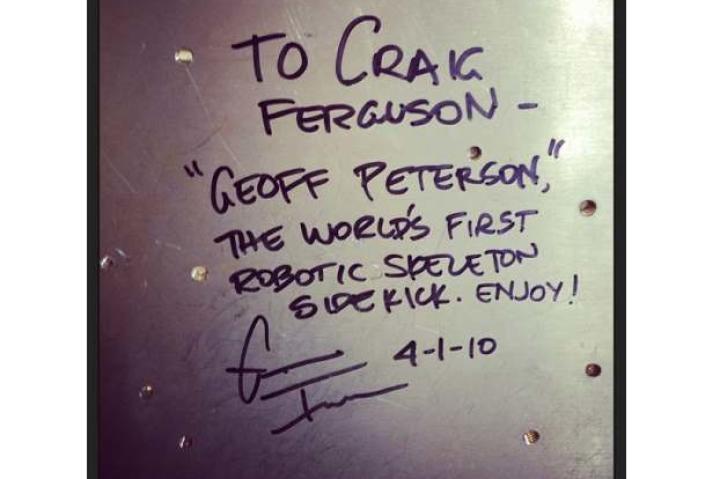 TO CRAIG
FERGUSON -
"GEOFF PETERSON,"
THE WORLD'S FIRST
ROBOTIC SKELETON
SIDEKICK. ENJOY!
4-1-10